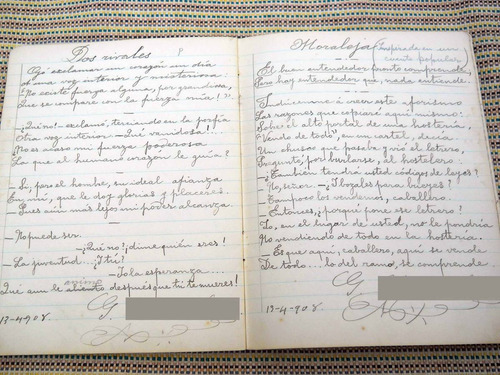 Dos rivales
Oyó exclamar mi corazón un dia
a una voz interior y misteriosa:
"No existe fuerza alguna, por grandiosa,
que se compare con la fuerza mía!"
— ¡Quiá! no! — exclamó, terciando en la porfía
otra voz interior — Qué vanidosa!
¿No es acaso mi fuerza poderosa
la que al humano corazón le guía?
— Sí, pero el hombre, su ideal afianza
en mí, que le doy glorias y placeres.
— Pues aun más lejos mi poder alcanza.
— No puede ser.
— ¡Quiá! no! ¡dime quién eres!
— La juventud... ¿Y tú?
— Yo la esperanza...
Qué aun le aliento, después que tú te mueres!
animo
G.
13-4-908
Moraleja (Inspirada en un
cuento popular)
El buen entendedor pronto comprende,
Pero hay entendedor que nada entiende.
Indúceme á creer este aforismo
Las razones que expreso aquí mismo:
Sobre el alto portal de una hostería,
"Vendo de todo", en un cartel, decía.
Un chusco que pasaba y vió el letrero,
Preguntó, por burlarse, al hostelero:
— ¿También tendrá usted códigos de leyes?
— No, señor. — ¿Y bozales para bueyes?
— Tampoco los vendemos, caballero.
— Entonces, ¿porqué pone ese letrero?
Yo, en el lugar de usted, no le pondría
No vendiendo de todo en la hostería.
— Es que aquí, caballero, aquí se vende
De todo... lo del ramo, se comprende.
G.
13-4-908